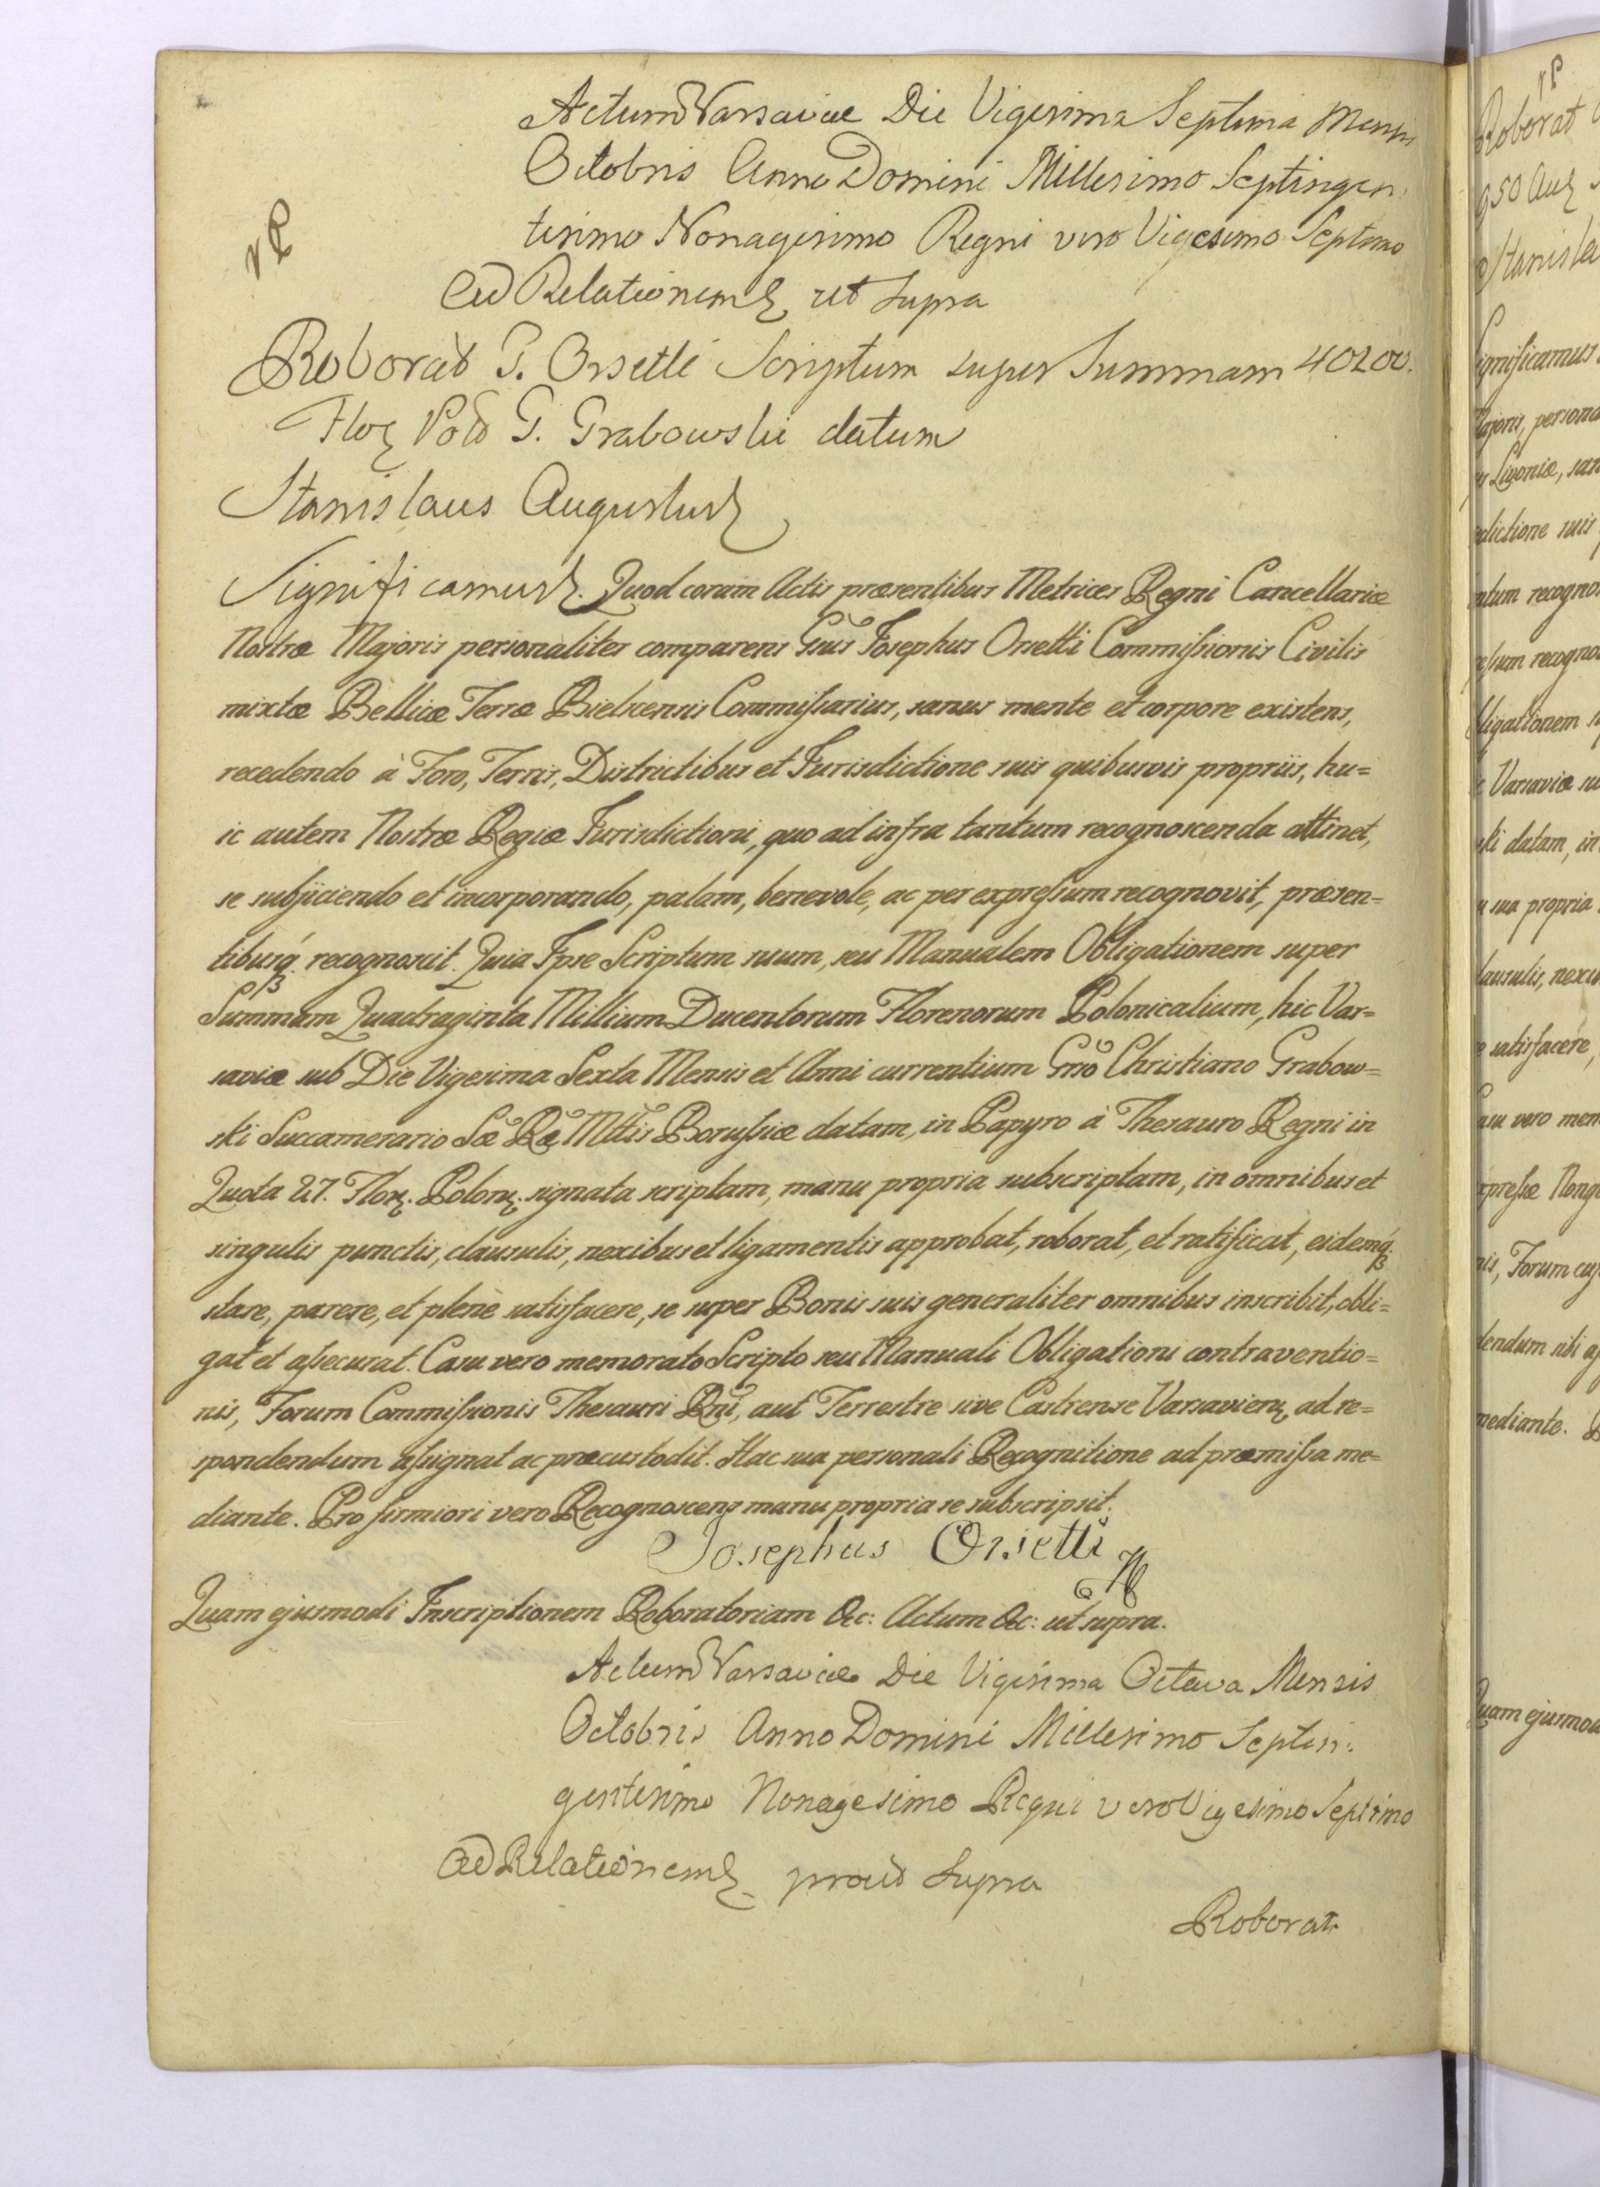 Actum Varsaviae Die Vigesima Septima Mensis
Octobris Anno Domini Millesimo Septingen:
tesimo Nonagesimo Regni vero Vigesimo Septimo
Ad Relationem ut supra
Roborat G. Orsetti Scriptum super Summam 40200.
Flor Pol G. Grabowski datum
Stanislaus Augustus
Significamus. Quod coram Actis præsentibus Metrices Regni Cancellariæ
Nostræ Majoris personaliter comparens Gnus Josephus Orsetti Commissionis Civilis
mixtæ Bellicæ Terræ Bielscensis Commissarius, sanus mente et corpore existens,
recedendo à Foro, Terris, Districtibus et Jurisdictione suis quibusvis propriis, hu=
ic autem Nostræ Regiæ Jurisdictioni, quo ad infra tantum recognoscenda attinet,
se subjiciendo et incorporando, palam, benevole, ac per expressum recognovit, præsen=
tibusq. recognoscit. Quia Ipse Scriptum suum, seu Manualem Obligationem super
Summam Quadraginta Millium Ducentorum Florenorum Polonicalium, hic Var=
saviæ sub Die Vigesima Sexta Mensis et Anni currentium Gnso Christiano Grabow=
ski Succamerario Sæ Ræ Mttis Borussiæ datam, in Papyro à Thesauro Regni in
Quota 27. Flor. Polon. signata scriptam, manu propria subscriptam, in omnibus et
singulis punctis, clausulis, nexibus et ligamentis approbat, roborat, et ratificat, eidemq.
stare, parere, et plene satisfacere, se super Bonis suis generaliter omnibus inscribit, obli=
gat et assecurat. Casu vero memorato Scripto seu Manuali Obligationi contraventio=
nis, Forum Commissionis Thesauri Rni, aut Terrestre sive Castrense Varsavien, ad re=
spondendum assignat ac præcustodit. Hac sua personali Recognitione ad præmissa me=
diante. Pro firmiori vero Recognoscens manu propria se subscripsit.
Josephus Orsetti
Quam ejusmodi Inscriptionem Roboratoriam &c: Actum &c: ut supra.
Actum Varsaviae Die Vigesima Octava Mensis
Octobris Anno Domini Millesimo Septin:
gentesimo Nonagesimo Regni vero Vigesimo Septimo
Ad Relationem prout supra
Roborat